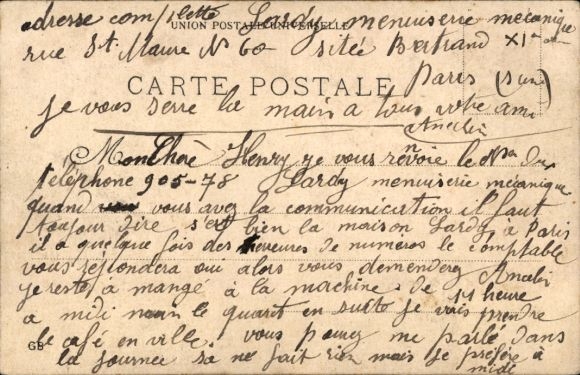 adresse complette Lardy menuiserie mecanique
UNION POSTALE UNIVERSELLE
rue St Maure No 60 sitée Bertrand XI
CARTE POSTALE Paris
je vous serre la main a tous votre ami
Amelin
Mon Cheré Henry je vous renvoie le No Du
telephone 905-78 Lardy menuiserie mécanique
quand vous avez la communication il faut
toujour dire s'est bien la maison Lardy à Paris
il a quelque fois des erreures de numeros le comptable
vous répondera oui alors vous demenderez Amelin
je reste a mangé à la machine de 11 heure
a midi le quaret en suite je vais prendre
le café en ville. vous pouvez me parlé dans
la journee sa ne fait rien mais je préfere à
midi
GB